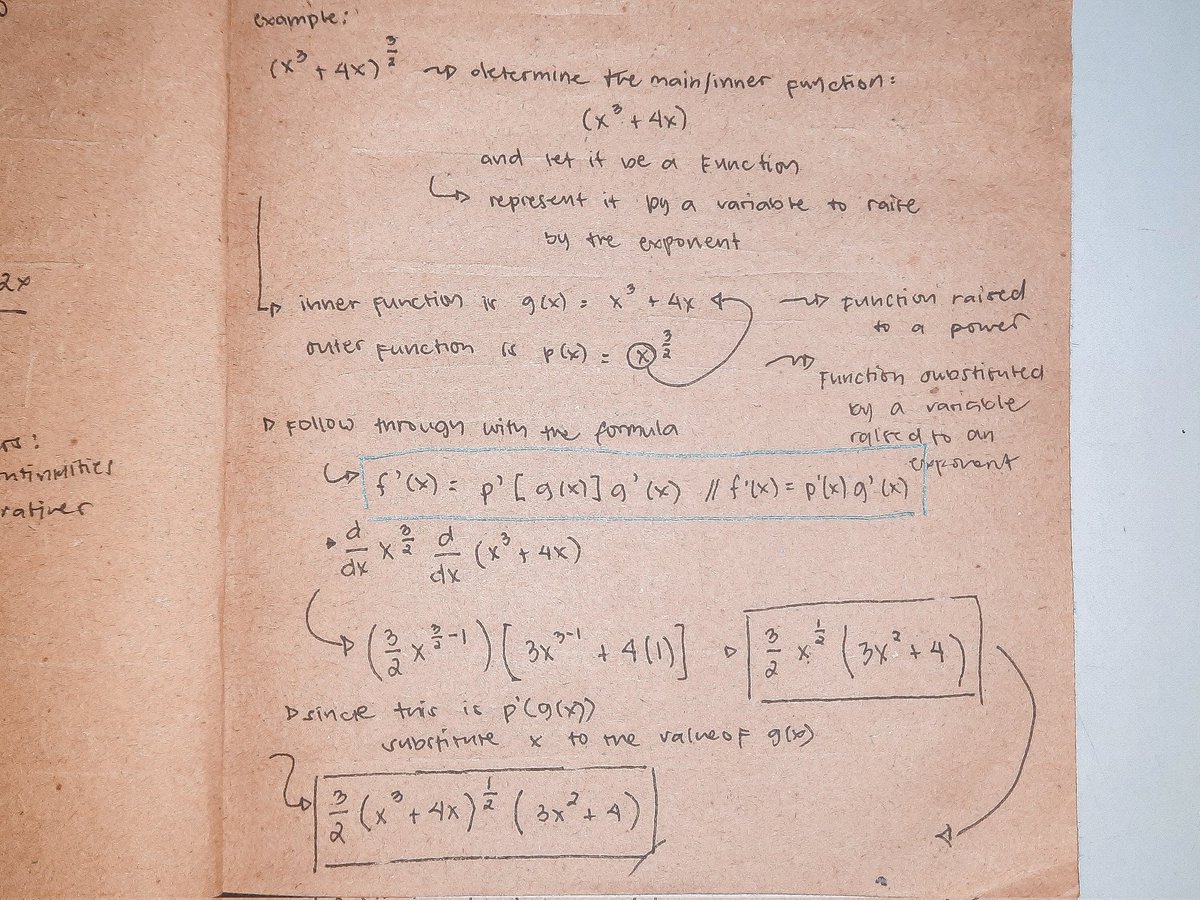 example:
(x³ + 4x)^(3/2) ~> determine the main/inner function:
(x³ + 4x)
and let it be a function
↳ represent it by a variable to raise
by the exponent
↳ inner function is g(x) = x³ + 4x
~> function raised
to a power
outer function is p(x) = x^(3/2)
~> function substituted
by a variable
raised to an
exponent
▷ Follow through with the formula
f'(x) = p'[g(x)] g'(x) // f'(x) = p'(x) g'(x)
d/dx x^(3/2) d/dx (x³ + 4x)
(3/2 x^(3/2 - 1)) [3x^(3-1) + 4(1)] ▷ 3/2 x^(1/2) (3x² + 4)
▷ since this is p'(g(x))
substitute x to the value of g(x)
3/2 (x³ + 4x)^(1/2) (3x² + 4)
2x
: